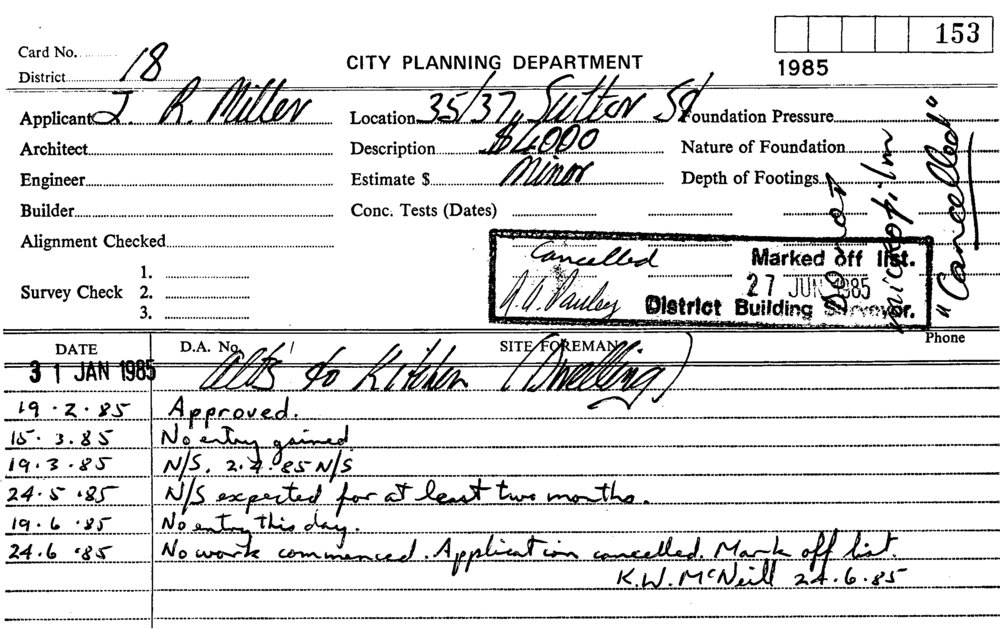 153
Card No. 18
District
CITY PLANNING DEPARTMENT
1985
Applicant J. R. Miller
Location 35/37, Sutton St
Foundation Pressure
Architect
Description $4000
Nature of Foundation
Engineer
Estimate $ Minor
Depth of Footings
Builder
Conc. Tests (Dates)
Alignment Checked
Survey Check
1.
2.
3.
Cancelled
Marked off list.
27 JUN 1985
District Building Surveyor.
Do not
microfilm
"Cancelled"
DATE
D.A. No.
SITE FOREMAN
Phone
31 JAN 1985 Alts to Kitchen (Dwelling)
19.2.85 Approved.
15.3.85 No entry gained
19.3.85 N/S. 2.4.85 N/S
24.5.85 N/S expected for at least two months.
19.6.85 No entry this day.
24.6.85 No work commenced. Application cancelled. Mark off list.
K.W. McNeill 24.6.85